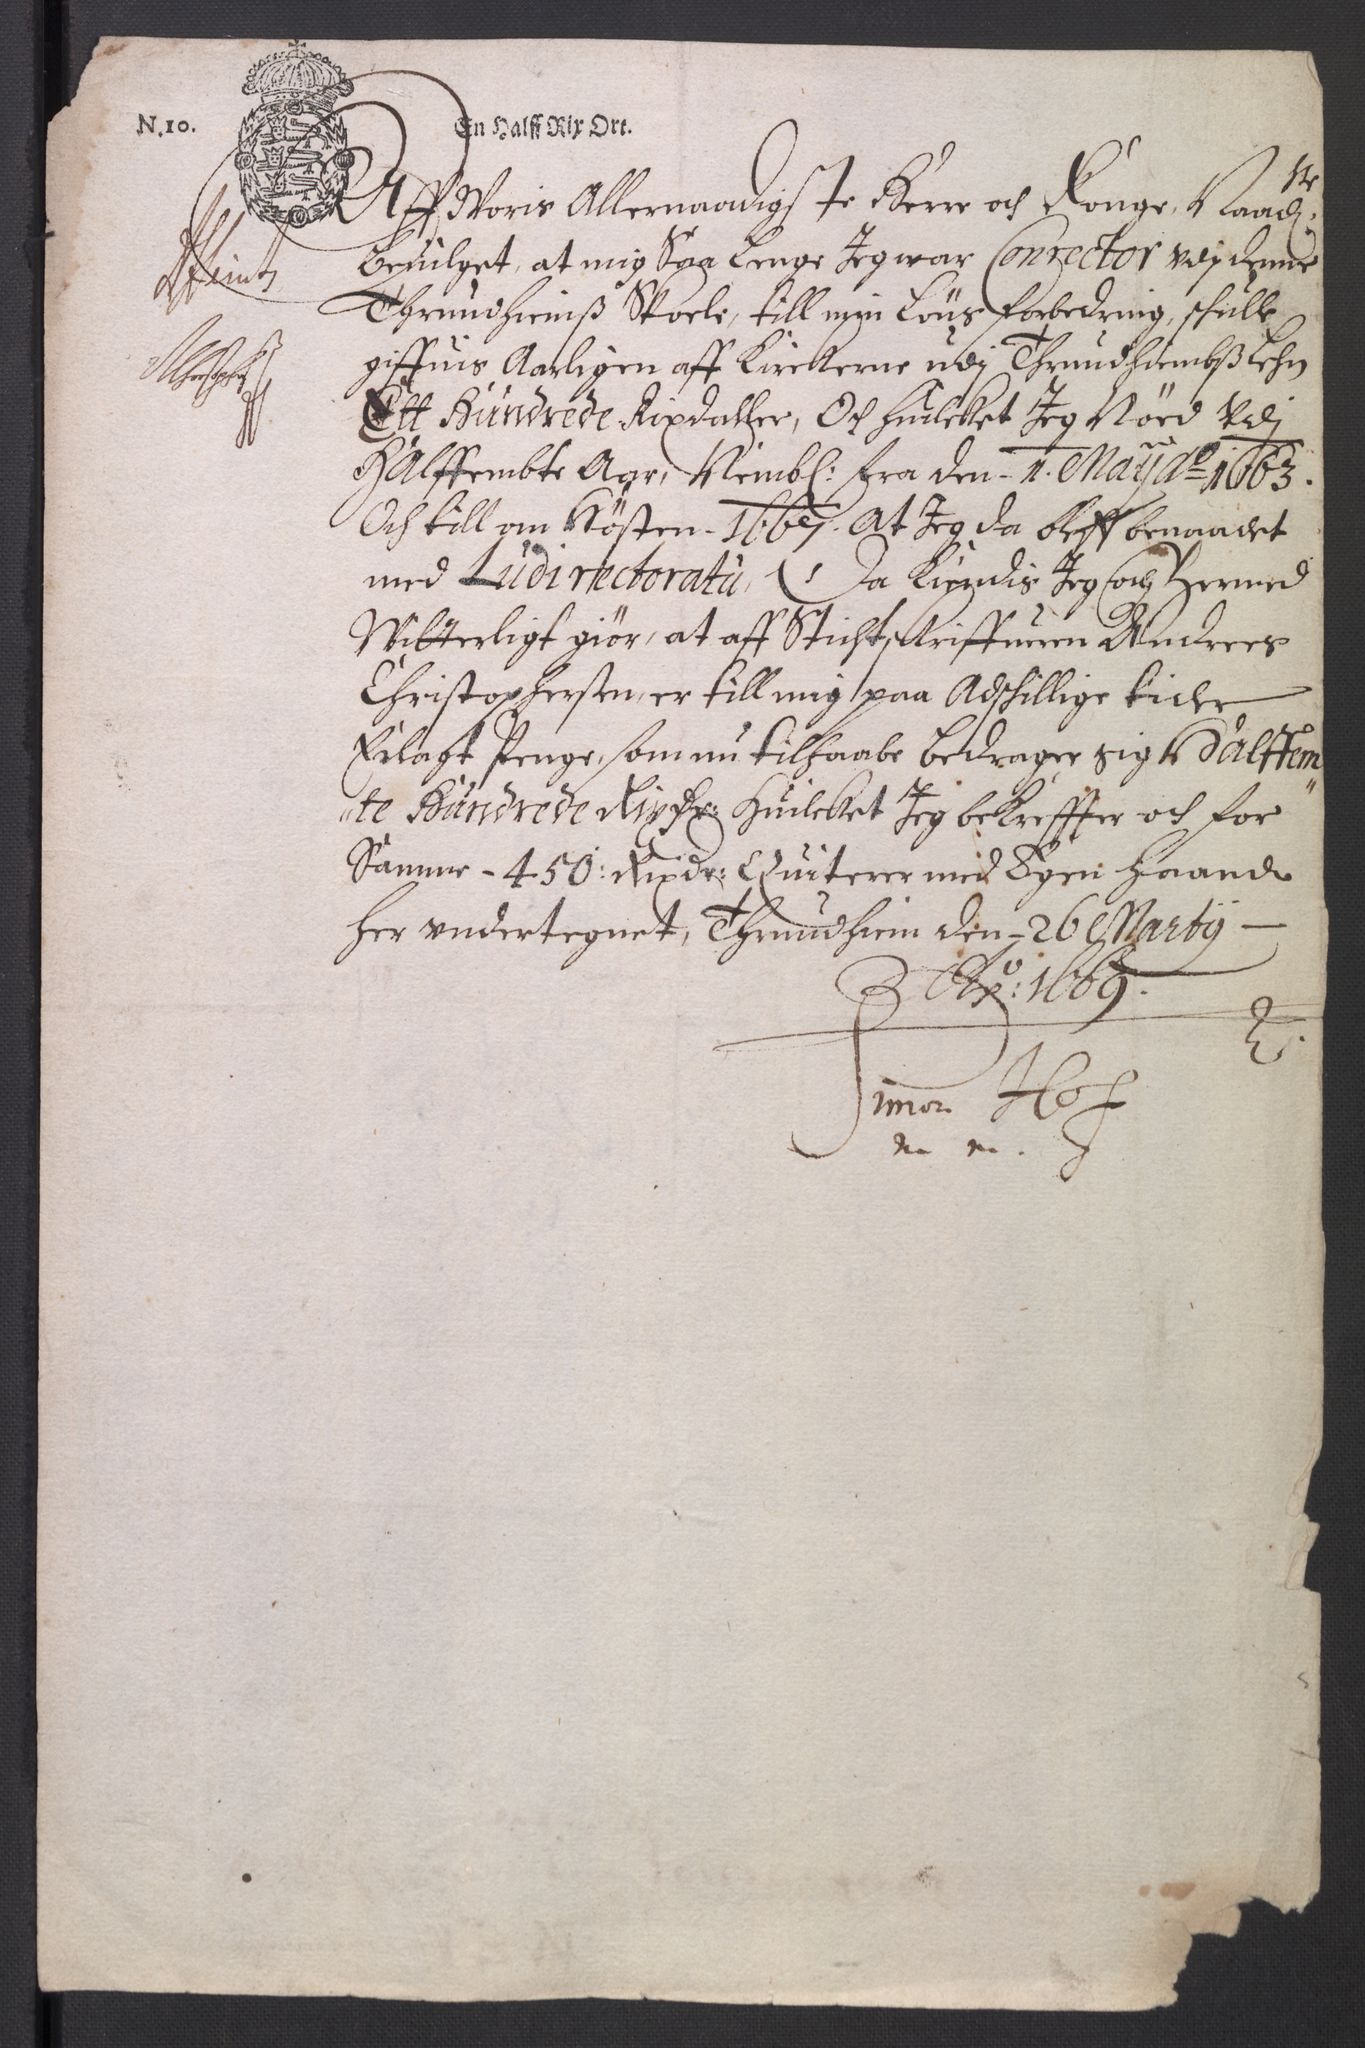 N.10.
En Halff Rix Ort.
Aff Woris Allernaadigste Herre och Konge, Naadst.
beuilget, at mig Saa Lenge Jeg war Conrector vdj denne
Thrundhiemß Skoele, till min Löns forbedring, schulle
giffuis Aarligen aff Kirckerne udj Thrundhiembß Lehn
Ett Hundrede Rixdaller, Och huilcket Jeg Nöed Vdj
Halffembte Aar, Nembl: fra den 1. Maij Ao 1663.
Och till om Hösten 1667. At Jeg da bleff benaadet
med Ludi rectoratu, Da Kiendis Jeg och Hermed
Witterligt giör, at aff Stichtskriffueren Andrees
Christophersen, er till mig paa Adschillige tider
Erlagt Penge, som nu tilhaabe bedrager sig Halffem
te Hundrede Rixdr: Huilcket Jeg bekreffter och for
Samme 450: Rixdr: Quiterer med Egen Haand
her vndertegnet, Thrundhiem den 26 Martij
Ao: 1669.
Simon Hof